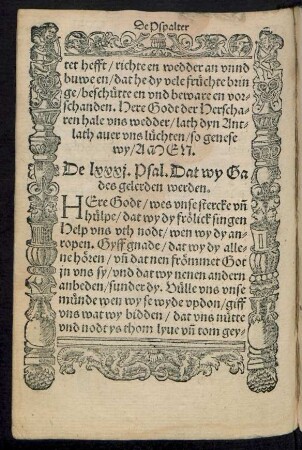 De Psalter
tet hefft / richte en wedder an vnnd
buwe en / dat he dy vele früchte brin
ge / beschütte en vnd beware en vor-
schanden. Here Godt der Herscha-
ren hale vns wedder / lath dyn Ant-
lath auer vns lüchten / so genese
wy / AMEN.
De lxxxj. Psal. Dat wy Ga
des gelerden werden.
HEre Godt / wes vnse stercke vñ
hülpe / dat wy dy frölick singen
Help vns vth nodt / wen wy dy an-
ropen. Gyff gnade / dat wy dy alle-
ne hören / vñ dat nen frömmet Got
in vns sy / vnd dat wy nenen andern
anbeden / sunder dy. Vülle vns vnse
münde wen wy se wyde vpdon / giff
vns wat wy bidden / dat vns nütte
vnd nodt ys thom lyue vñ tom gey-